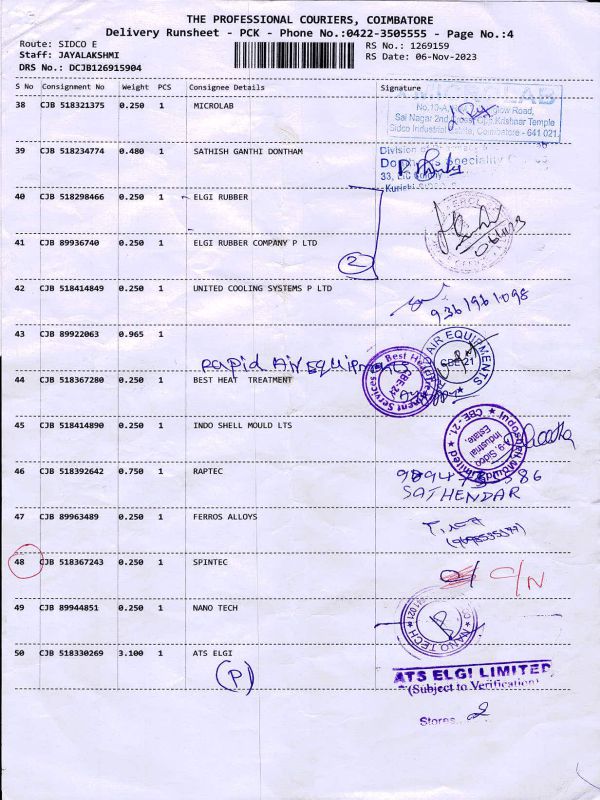 THE PROFESSIONAL COURIERS, COIMBATORE
Delivery Runsheet - PCK - Phone No.:0422-3505555 - Page No.:4
Route: SIDCO E RS No.: 1269159
Staff: JAYALAKSHMI RS Date: 06-Nov-2023
DRS No.: DCJB126915904
S No Consignment No Weight PCS Consignee Details Signature
38 CJB 518321375 0.250 1 MICROLAB
Sai Nagar 2nd Cross, Opp. Krishnar Temple
Sidco Industrial Estate, Coimbatore - 641 021.
39 CJB 518234774 0.480 1 SATHISH GANTHI DONTHAM
Division of
Speciality
40 CJB 518298466 0.250 1 ELGI RUBBER
41 CJB 89936740 0.250 1 ELGI RUBBER COMPANY P LTD
2
42 CJB 518414849 0.250 1 UNITED COOLING SYSTEMS P LTD
9361961098
43 CJB 89922063 0.965 1
Rapid Air Equipments
AIR EQUIPMENTS
CBE-21
44 CJB 518367280 0.250 1 BEST HEAT TREATMENT
CBE-24
45 CJB 518414890 0.250 1 INDO SHELL MOULD LTS
Indoshell Mould Limited
A-9, Sidco
Industrial
Estate
CBE-21.
46 CJB 518392642 0.750 1 RAPTEC
SATHENDAR
47 CJB 89963489 0.250 1 FERROS ALLOYS
48 CJB 518367243 0.250 1 SPINTEC
C/N
49 CJB 89944851 0.250 1 NANO TECH
NANO TECH
641 021
50 CJB 518330269 3.100 1 ATS ELGI
P
ATS ELGI LIMITED
(Subject to Verification)
Stores